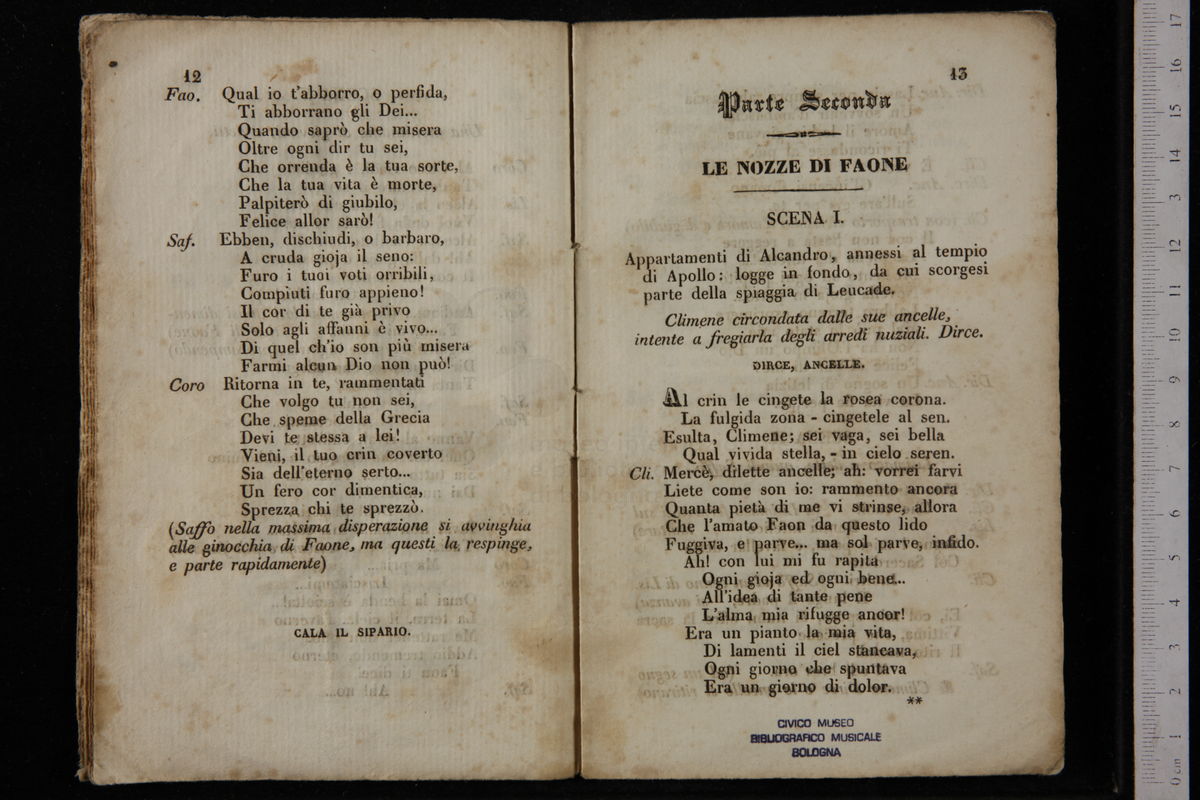 12
Fao. Qual io t'abborro, o perfida,
Ti abborrano gli Dei...
Quando saprò che misera
Oltre ogni dir tu sei,
Che orrenda è la tua sorte,
Che la tua vita è morte,
Palpiterò di giubilo,
Felice allor sarò!
Saf. Ebben, dischiudi, o barbaro,
A cruda gioja il seno:
Furo i tuoi voti orribili,
Compiuti furo appieno!
Il cor di te già privo
Solo agli affanni è vivo...
Di quel ch'io son più misera
Farmi alcun Dio non può!
Coro Ritorna in te, rammentati
Che volgo tu non sei,
Che speme della Grecia
Devi te stessa a lei!
Vieni, il tuo crin coverto
Sia dell'eterno serto...
Un fero cor dimentica,
Sprezza chi te sprezzò.
(Saffo nella massima disperazione si avvinghia
alle ginocchia di Faone, ma questi la respinge,
e parte rapidamente)
CALA IL SIPARIO.
13
Parte Seconda
LE NOZZE DI FAONE
SCENA I.
Appartamenti di Alcandro, annessi al tempio
di Apollo: logge in fondo, da cui scorgesi
parte della spiaggia di Leucade.
Climene circondata dalle sue ancelle,
intente a fregiarla degli arredi nuziali. Dirce.
DIRCE, ANCELLE.
Al crin le cingete la rosea corona.
La fulgida zona - cingetele al sen.
Esulta, Climene; sei vaga, sei bella
Qual vivida stella, - in cielo seren.
Cli. Mercè, dilette ancelle; ah: vorrei farvi
Liete come son io: rammento ancora
Quanta pietà di me vi strinse, allora
Che l'amato Faon da questo lido
Fuggiva, e parve... ma sol parve, infido.
Ah! con lui mi fu rapita
Ogni gioja ed ogni bene...
All'idea di tante pene
L'alma mia rifugge ancor!
Era un pianto la mia vita,
Di lamenti il ciel stancava,
Ogni giorno che spuntava
Era un giorno di dolor.
**
CIVICO MUSEO
BIBLIOGRAFICO MUSICALE
BOLOGNA
0 cm 1 2 3 4 5 6 7 8 9 10 11 12 13 14 15 16 17